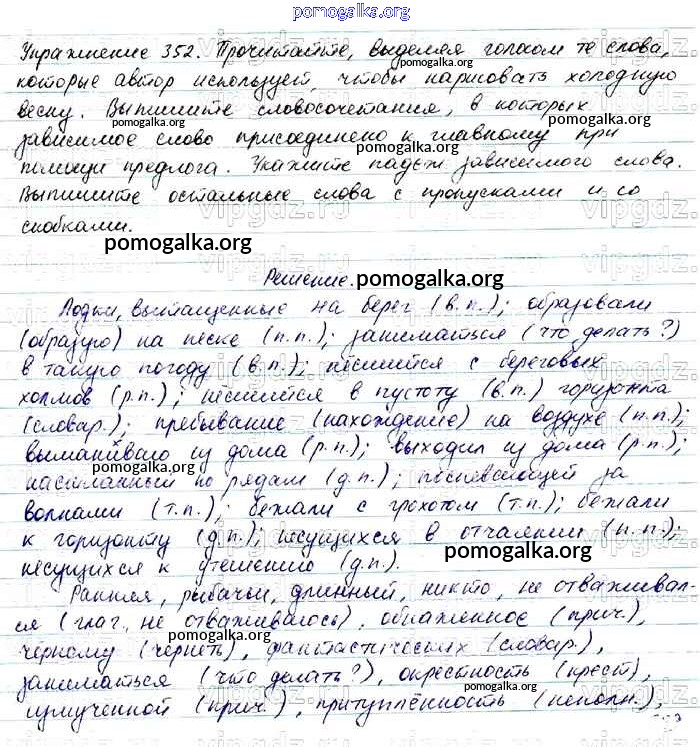 pomogalka.org
Упражнение 352. Прочитайте, выделяя голосом те слова,
pomogalka.org
которые автор использует, чтобы нарисовать холодную
весну. Выпишите словосочетания, в которых
pomogalka.org pomogalka.org
зависимое слово присоединено к главному при
помощи предлога. Укажите падеж зависимого слова.
Выпишите остальные слова с пропусками и со
скобками.
pomogalka.org
Решение. pomogalka.org
Лодки, вытащенные на берег (в.п.); образовали
(образую) на песке (п.п.); заниматься (что делать?)
в такую погоду (в.п.); несшийся с береговых
холмов (р.п.); несшийся в пустоту (в.п.) горизонта
(словар.); пребывание (нахождение) на воздухе (п.п.);
выманивало из дома (р.п.); выходил из дома (р.п.);
pomogalka.org
насыпанный по рядам (д.п.); поспевающей за
волнами (т.п.); бежали с грохотом (т.п.); бежали
к горизонту (д.п.); несущихся в отчаянии (п.п.);
pomogalka.org
несущихся к утешению (д.п.).
Ранняя, рыбачьи, длинный, никто, не отваживал-
ся (глаг., не отваживалось), обнаженное (прич.),
pomogalka.org
черному (чернеть), фантастических (словар.),
заниматься (что делать?), окрестность (крест),
pomogalka.org
измученной (прич.), притуплённость (неполн.),